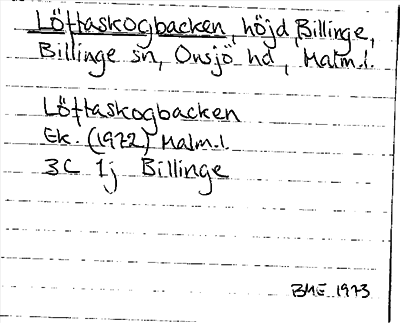 Löttaskogbacken, höjd, Billinge,
Billinge sn, Onsjö hd, Malm.l.
Löttaskogbacken
Ek. (1972) Malm.l.
3C 1j Billinge
BME 1973